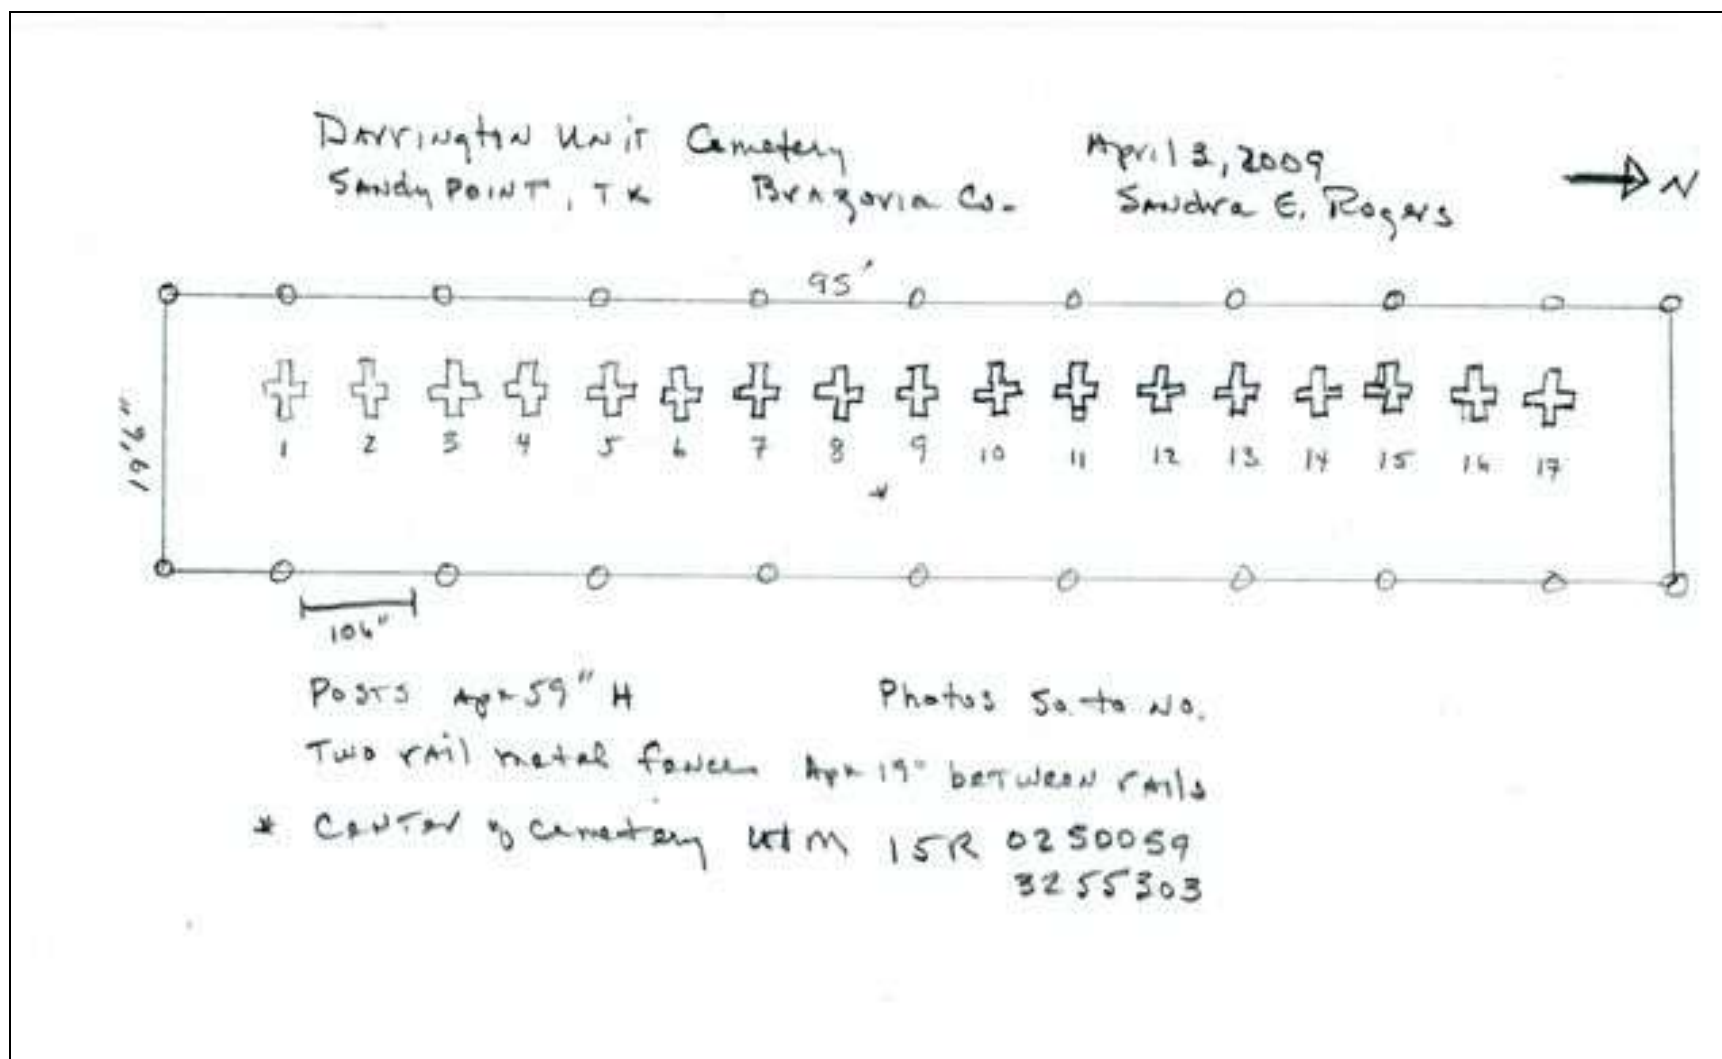 Darrington Unit Cemetery April 3, 2009
Sandy Point, TX Brazoria Co. Sandra E. Rogers
N
95'
19'6"
1 2 3 4 5 6 7 8 9 10 11 12 13 14 15 16 17
*
106"
Posts Apx 59" H Photos So. to No.
Two rail metal fence Apx 19" between rails
* Center of cemetery UTM 15R 0250059
3255303